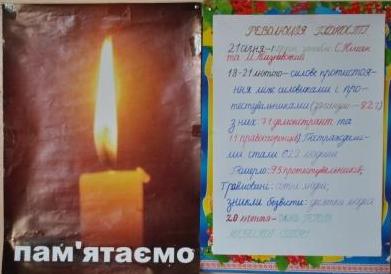 пам'ятаємо
РЕВОЛЮЦІЯ ГІДНОСТІ
21 січня-
та М. Жизневский
18-21 лютого - силове протистоя-
ння між силовиками і про-
тестувальниками (загинули - 82).
з них 71 демонстрант та
11 правоохоронців). Постраждали-
ми стали 622 людини
Померло: 95 протестувальників;
Травмовані: сотні людей;
зникли безвісти: десятки людей
20 лютого -